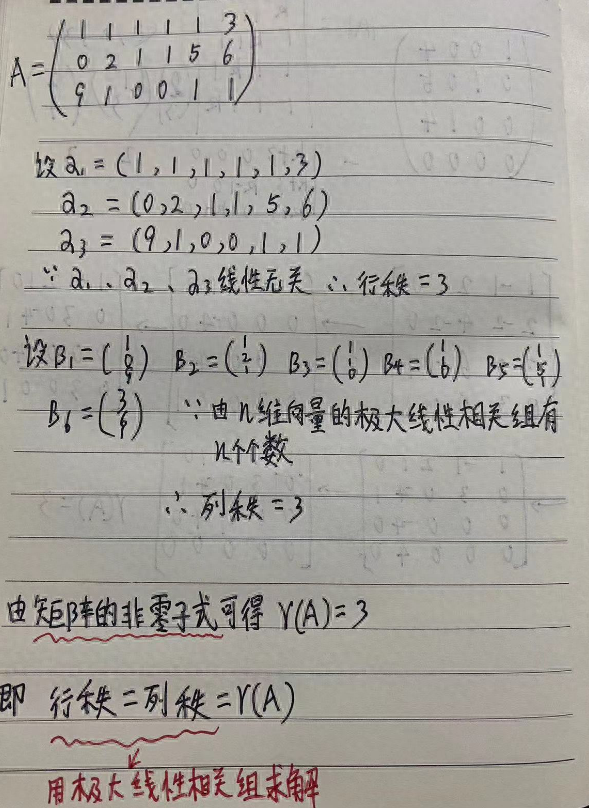 A = ( 1 1 1 1 1 3
0 2 1 1 5 6
9 1 0 0 1 1 )
设 a₁ = (1, 1, 1, 1, 1, 3)
a₂ = (0, 2, 1, 1, 5, 6)
a₃ = (9, 1, 0, 0, 1, 1)
∵ a₁、a₂、a₃线性无关 ∴ 行秩 = 3
设B₁ = (1 0 9) B₂ = (1 2 1) B₃ = (1 1 0) B₄ = (1 1 0) B₅ = (1 5 1)
B₆ = (3 6 1) ∵ 由n维向量的极大线性相关组有
n个个数
∴ 列秩 = 3
由矩阵的非零子式可得 r(A) = 3
即 行秩 = 列秩 = r(A)
用极大线性相关组求解